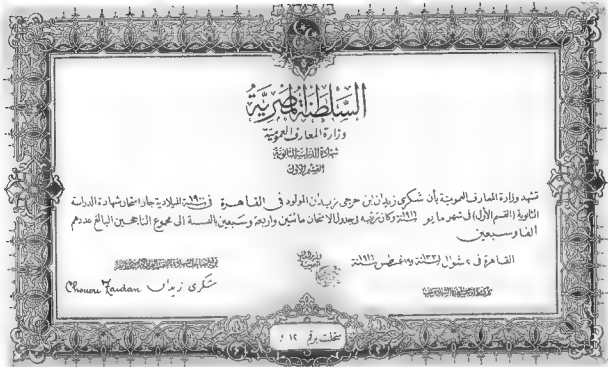 السلطنة المصرية
وزارة المعارف العمومية
شهادة الدراسة الثانوية
القسم الأول
تشهد وزارة المعارف العمومية بأن شكري زيدان ابن جرجي زيدان المولود في القاهرة في سنة ١٩٠٠ الميلادية جاز امتحان شهادة الدراسة
الثانوية (القسم الأول) في شهر مايو سنة ١٩١٦ وكان ترتيبه في جدول الامتحان مائتين واربعة وسبعين بالنسبة الى مجموع الناجحين البالغ عددهم
الفا وسبعين
القاهرة في ٢ شوال سنة ١٣٣٤ اغسطس سنة ١٩١٦
وزارة المعارف العمومية
شكرى زيدان Choucri Zaidan
سجلت برقم ١٢